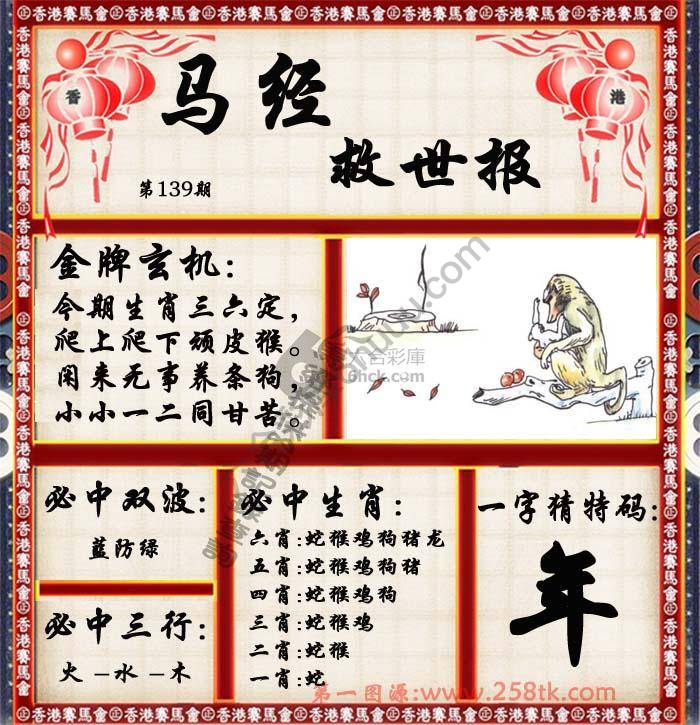 香港賽馬會
香 港
马经
救世报
第139期
金牌玄机:
今期生肖三六定，
爬上爬下顽皮猴。
闲来无事养条狗，
小小一二同甘苦。
必中双波:
蓝防绿
必中三行:
火–水–木
必中生肖:
六肖:蛇猴鸡狗猪龙
五肖:蛇猴鸡狗猪
四肖:蛇猴鸡狗
三肖:蛇猴鸡
二肖:蛇猴
一肖:蛇
一字猜特码:
年
第一图源:www.258tk.com